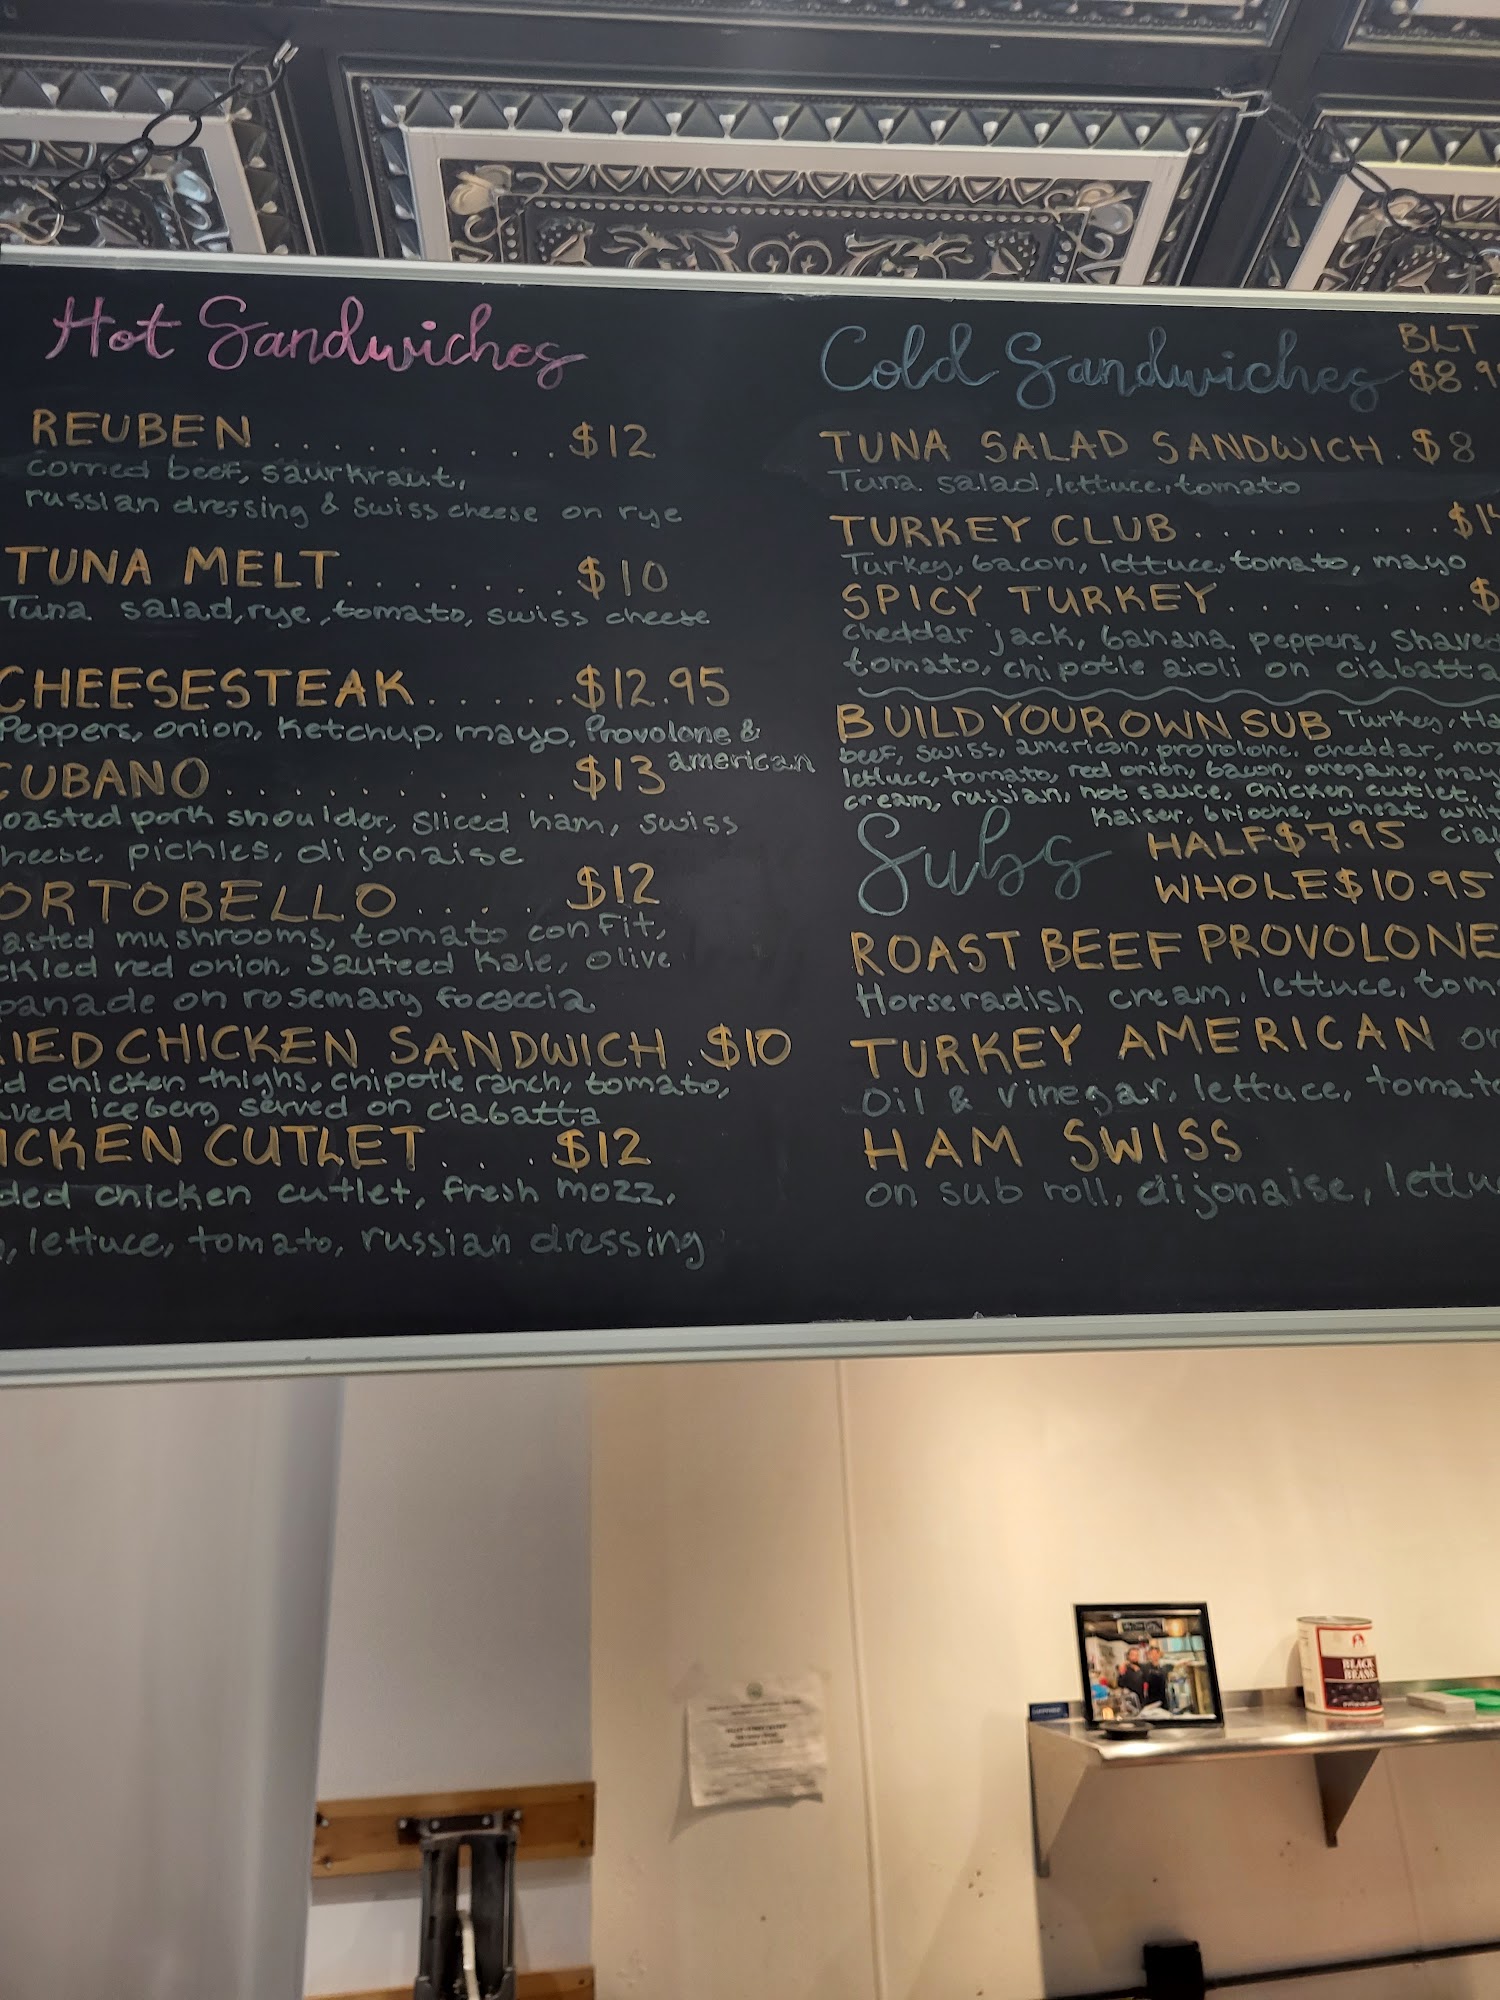 Hot Sandwiches
REUBEN.........$12
corned beef, saurkraut,
russian dressing & swiss cheese on rye
TUNA MELT.......$10
Tuna salad, rye, tomato, swiss cheese
CHEESESTEAK.....$12.95
Peppers, onion, Ketchup, mayo, Provolone &
american
CUBANO...........$13
oasted pork shoulder, sliced ham, swiss
heese, pickles, dijonaise
ORTOBELLO.....$12
asted mushrooms, tomato confit,
ckled red onion, sauteed kale, olive
panade on rosemary focaccia
IED CHICKEN SANDWICH.$10
ed chicken thighs, chipotle ranch, tomato,
ved iceberg served on ciabatta
ICKEN CUTLET....$12
ded chicken cutlet, fresh mozz,
, lettuce, tomato, russian dressing
Cold Sandwiches
BLT
$8.9
TUNA SALAD SANDWICH.$8
Tuna salad, lettuce, tomato
TURKEY CLUB..........$1
Turkey, bacon, lettuce, tomato, mayo
SPICY TURKEY..........$
cheddar jack, banana peppers, shaved
tomato, chipotle aioli on ciabatta
BUILD YOUR OWN SUB Turkey, Ha
beef, swiss, american, provolone, cheddar, moz
lettuce, tomato, red onion, bacon, oregano, may
cream, russian, hot sauce, chicken cutlet,
Kaiser, brioche, wheat, whit
cia
Subs
HALF $7.95
WHOLE $10.95
ROAST BEEF PROVOLONE
Horseradish cream, lettuce, tom
TURKEY AMERICAN on
oil & vinegar, lettuce, tomat
HAM SWISS
on sub roll, dijonaise, lettu
BLACK
BEANS